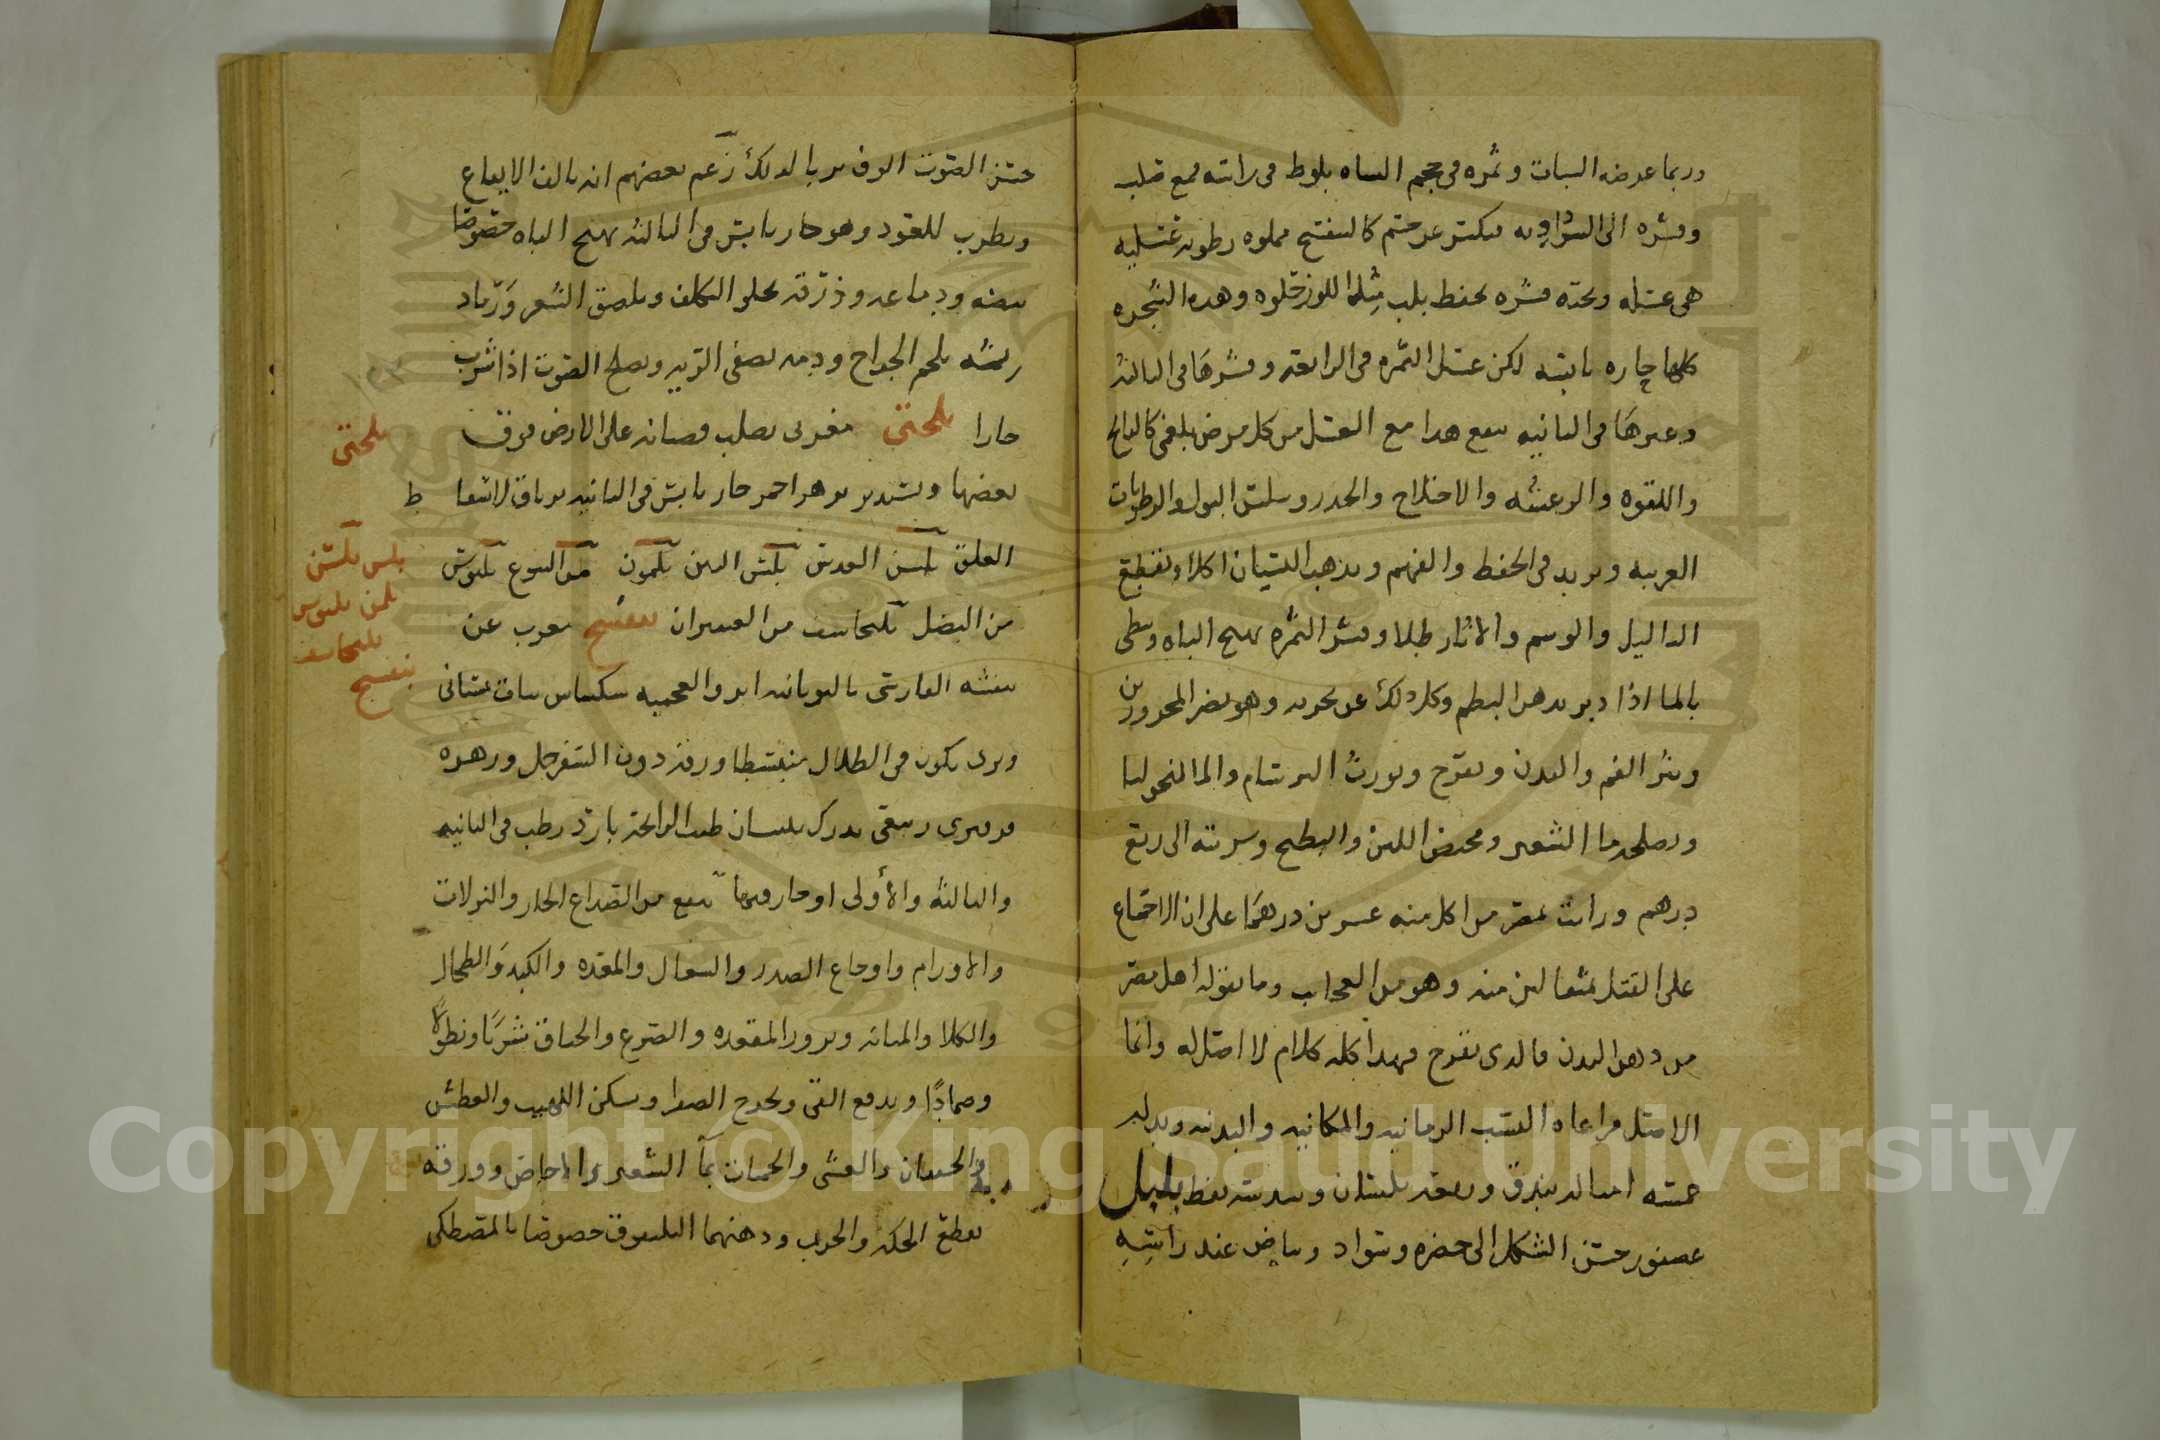 وربما عرضه السبات وثمره في حجم الشاه بلوط في راسه قمع صلب
وقشره الى السواد ينكسر عن جسم كالسفنج مملوه رطوبه عسليه
هي عسله وتحته قشره تحفظ بلب مثل اللوز حلوه وهذه الشجره
كلها حاره يابسه لكن عسل الثمره في الرابعه وقشرها في الثالثه
وغيرها في الثانيه ينفع هذا مع العسل من كل مرض بلغمي كالفالج
واللقوه والرعشه والاختلاج والخدر وسلس البول والرطوبات
الغريبه ويزيد في الحفظ والفهم ويذهب النسيان اكلا ويقطع
الثاليل والوسم والاثار طلا وقشر الثمره يهيج الباه ويبطي
بالما اذا دبر بدهن البطم وكل ذلك عن تجربه وهو يضر المحرورين
ويبثر الفم والبدن ويقرح ويورث البرسام والمالنخوليا
ويصلحه ما الشعير ومخيض اللبن والبطيخ وشربته الى ربع
درهم ورايت بمصر من اكل منه عشرين درهما على ان الاجماع
على القتل بمثقالين منه وهو من العجايب وما يقوله اهل مصر
من دهن البدن فالذي يقرح فهذا كله كلام لا اصل له وانما
الاصل مراعاه النسب الزمانيه والمكانيه والبدنيه وبدله
خمسه امثاله بندق وربعه بلسان وسدسه نفط بلبل
عصفور حسن الشكل الى خضره وسواد وبياض عند راسه
حسن الصوت الوف يربا لذلك زعم بعضهم انه يالف الايقاع
ويطرب للعود وهو حار يابس في الثالثه يهيج الباه خصوصا
بيضه ودماغه وذرقه يجلو الكلف ويلصق الشعر ورماد
ريشه يلحم الجراح ودمه يصفي الريه ويصلح الصوت اذا شرب
حارا بلختي مغربي يصلب قصبانه على الارض فوق
بعضها ويستدير بزهر احمر حار يابس في الثانيه ترياق لاسقا ط
العلق بلسن العدس بلس التين بلمون من اليتوع بلبوس
من البصل بلنجاسف من القيصوم بنفسج معرب عن
بنفشه الفارسي باليونانيه ابر والعجميه سكساس نبات بستاني
وبري يكون في الظلال منبسطا ورقه دون السفرجل وزهره
فرفيري ربيعي يدرك بنيسان طيب الرائحه بارد رطب في الثانيه
والثالثه والأولى او حار فيها ينفع من الصداع الحار والنزلات
والاورام واوجاع الصدر والسعال والمعده والكبد والطحال
والكلا والمثانه وبروز المقعده والصرع والخناق شربا ونطولا
وضمادًا ويدفع القى ويخرج الصفرا ويسكن اللهيب والعطش
والخفقان والغشي والحميات بما الشعير والاجاص وورقه
يقطع الحكه والجرب ودهنهما اللينوفر خصوصا بالمصطكي
بلختي
بلس بلسن
بلمن بلبوس
بلنجاسف
بنفسج